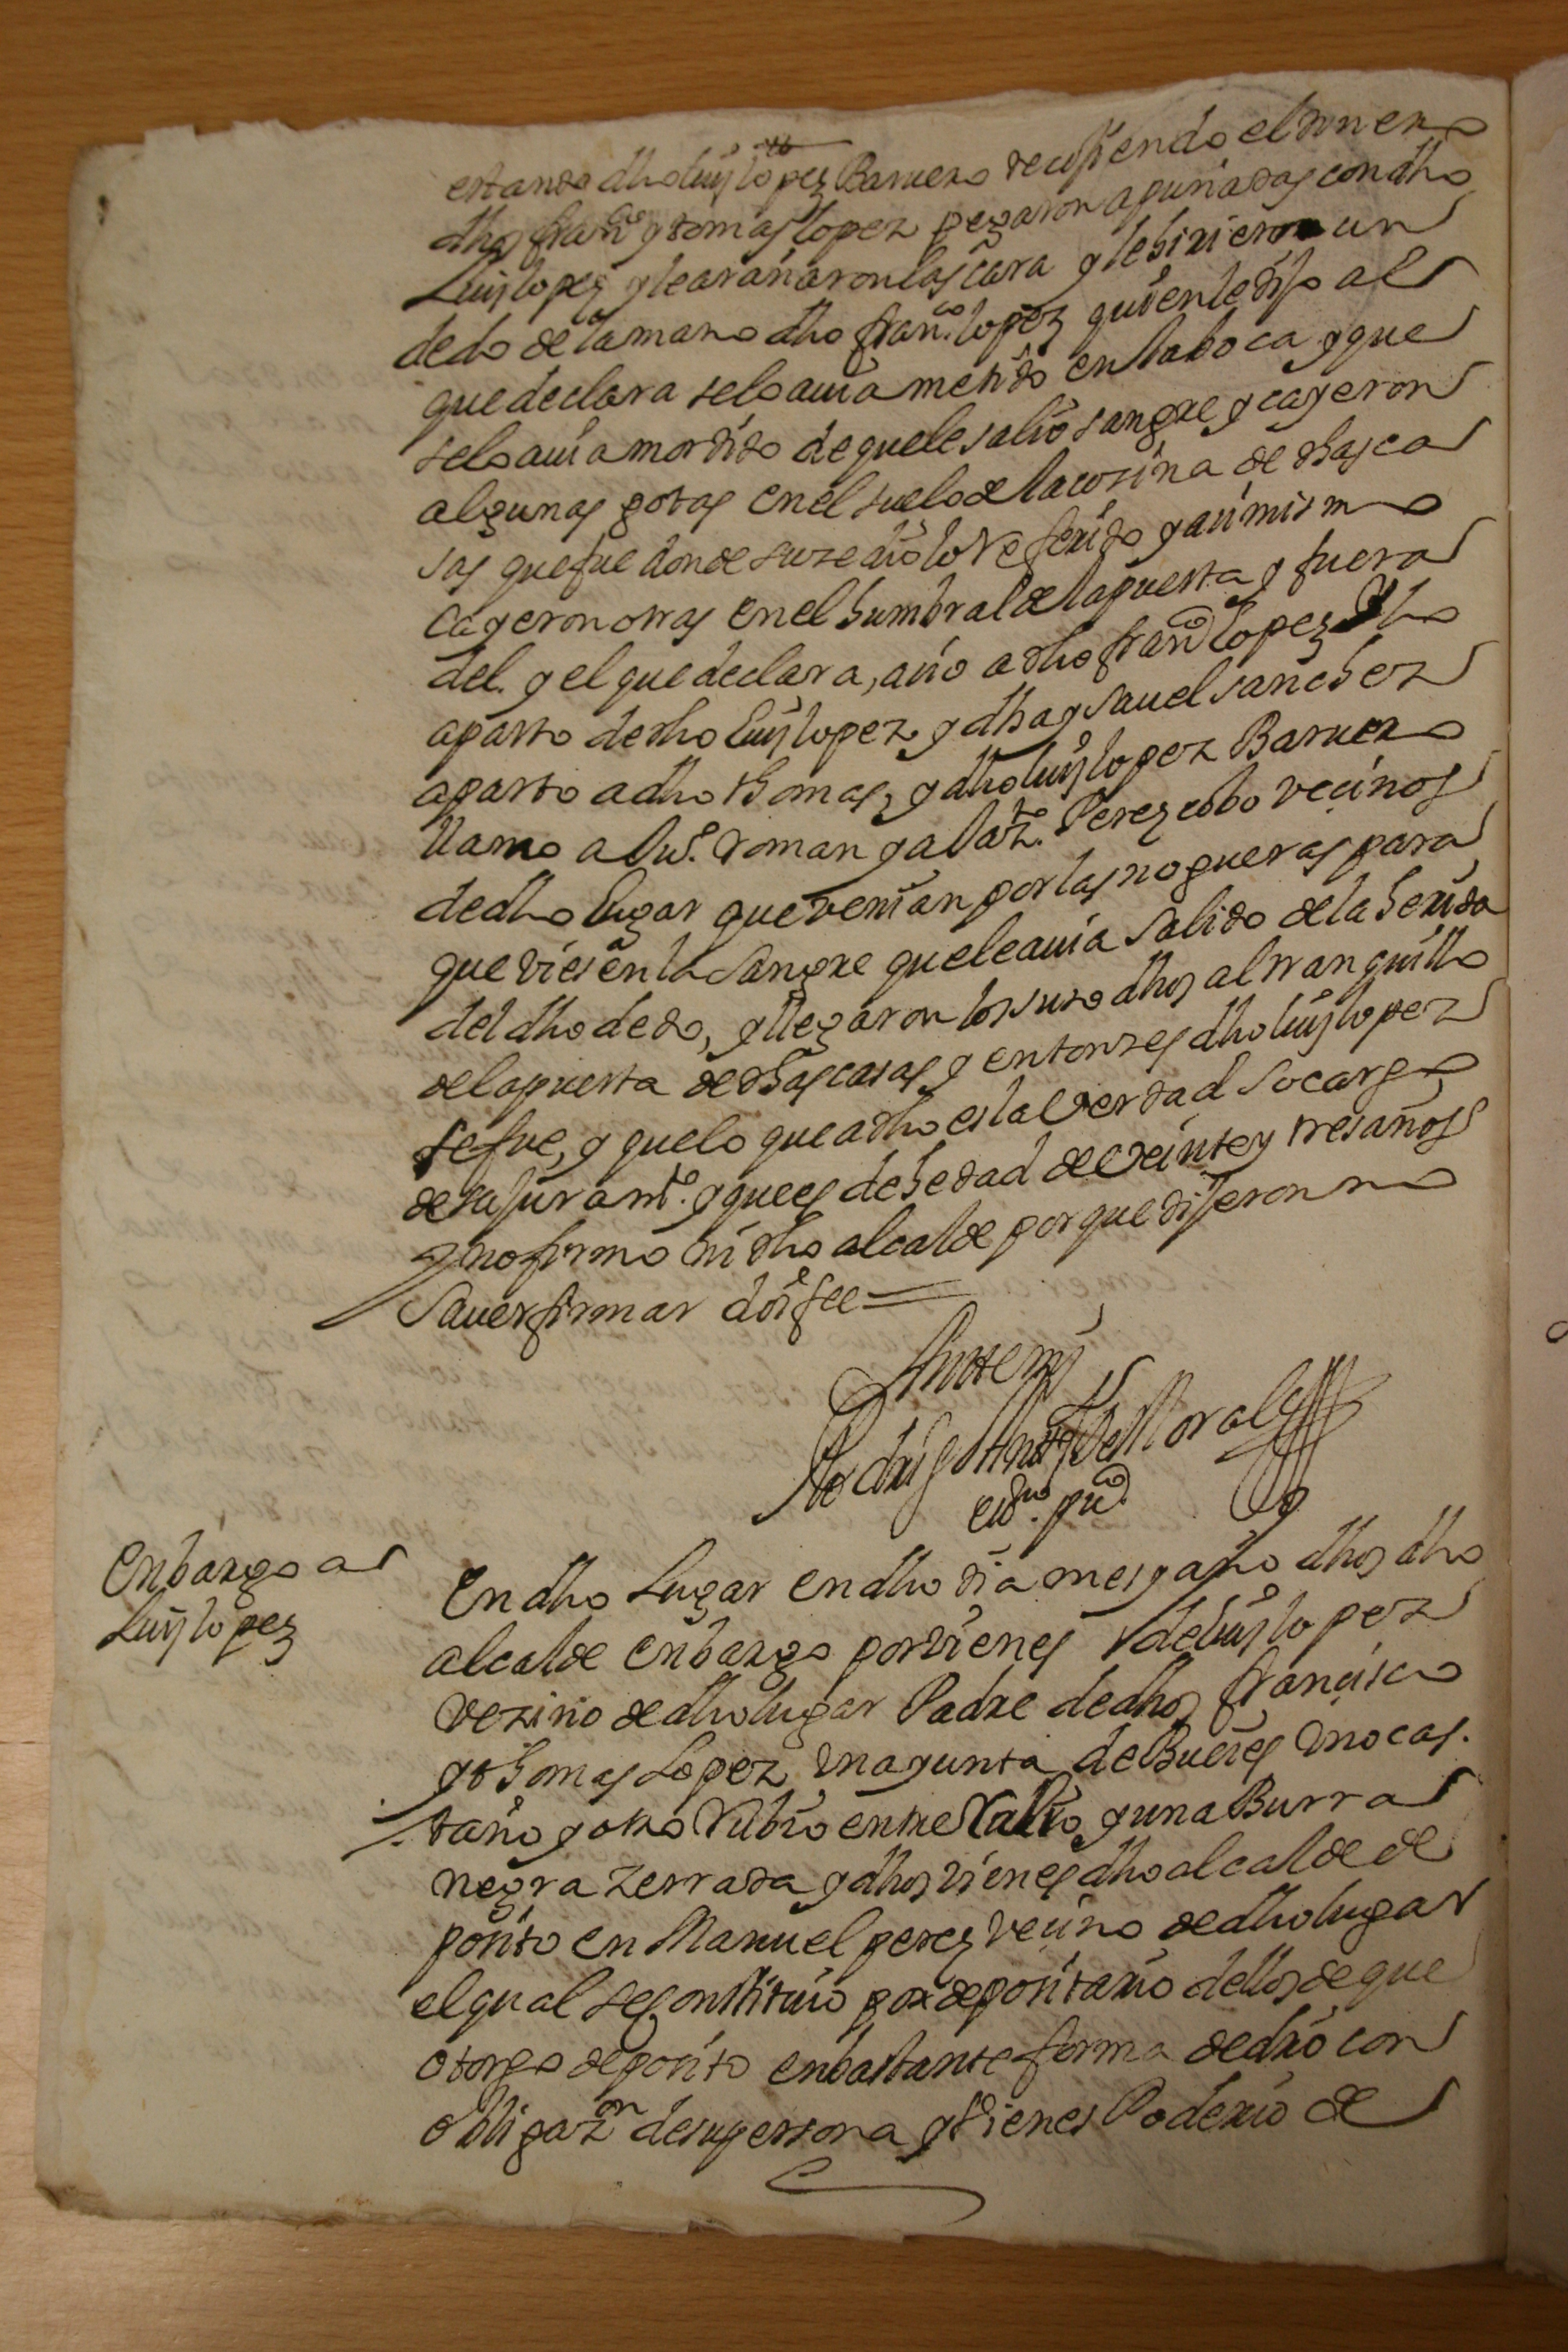 estando dho luis lopez Baruero recojiendo el dinero
dhos franco y tomas lopez pegaron a puñadas con dho
Luis lopez y le arañaron las cara y le hirieron un
dedo de la mano dho franco. lopez quien le dijo al
que declara se lo auia metido en la boca y que
se lo auia mordido de que le salio sangre y cayeron
algunas gotas en el suelo de la cozina de dhas ca
sas que fue donde suzedio lo referido y asimismo
cayeron otras en el humbral de la puerta y fuera
del. y el que declara, asio a dho franco lopez y lo
aparto de dho luis lopez y dha ysauel sanchez
aparto a dho thomas, y dho luis lopez Baruero
llamo a Roman y a Perez cobo vecinos
de dho lugar que venian por las nogueras para
que viesen la sangre que le auia salido de la herida
del dho dedo, y llegaron los suso dhos al tranquillo
de la puerta de dhas casas y entonzes dho luis lopez
se fue, y que lo que a dho es la verdad so cargo
de su juramto. y que es de hedad de veinte y tres años
y no firmo ni dho alcalde porque dijeron no
sauer firmar doi fee =
Ante mi
Rodrigo del Moral
esno. puco
Enbargo a
Luis lopez
En dho Lugar en dho dia mes y año dhos dho
alcalde enbargo por vienes de luis lopez
vezino de dho lugar Padre de dhos francisco
y thomas Lopez una yunta de Bueies uno cas.
taño y otro Rubio entre y una Burra
negra zerrada y dhos vienes dho alcalde de
posito en Manuel perez vecino de dho lugar
el qual se constituio por depositario dellos de que
otorgo deposito en bastante forma de dro con
obligazon de su persona y vienes Poderio de